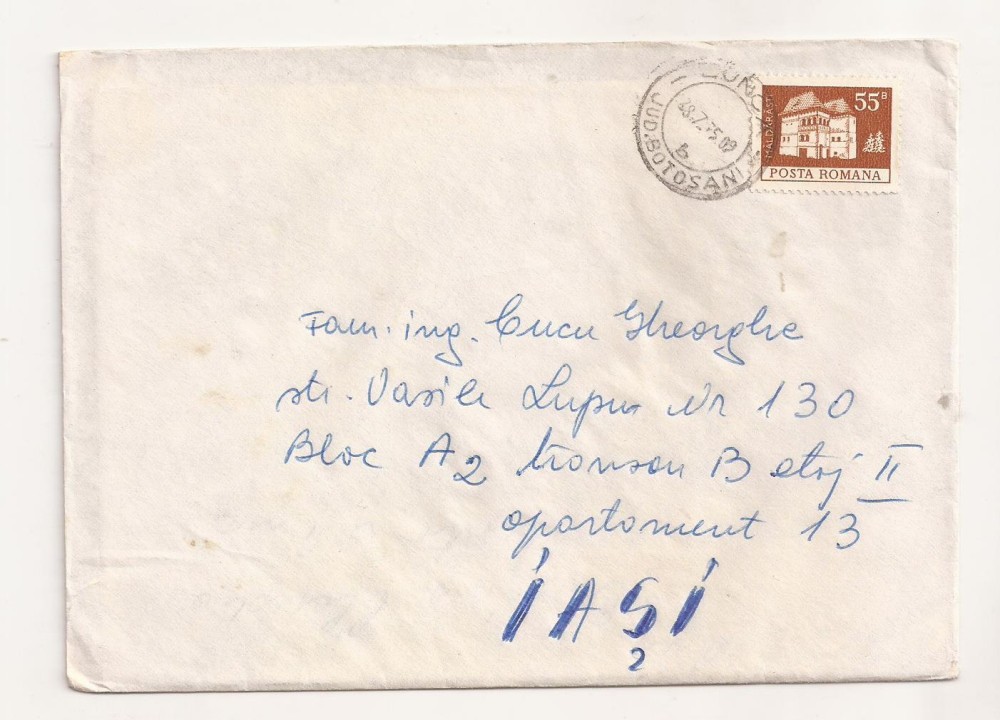 LUNCA
28.7.75.09
b
JUD. BOTOSANI
MALDARASTI
55 B
POSTA ROMANA
Fam. ing. Cucu Gheorghe
str. Vasile Lupu Nr 130
Bloc A2 tronson B etaj II
apartament 13
IAŞI
2